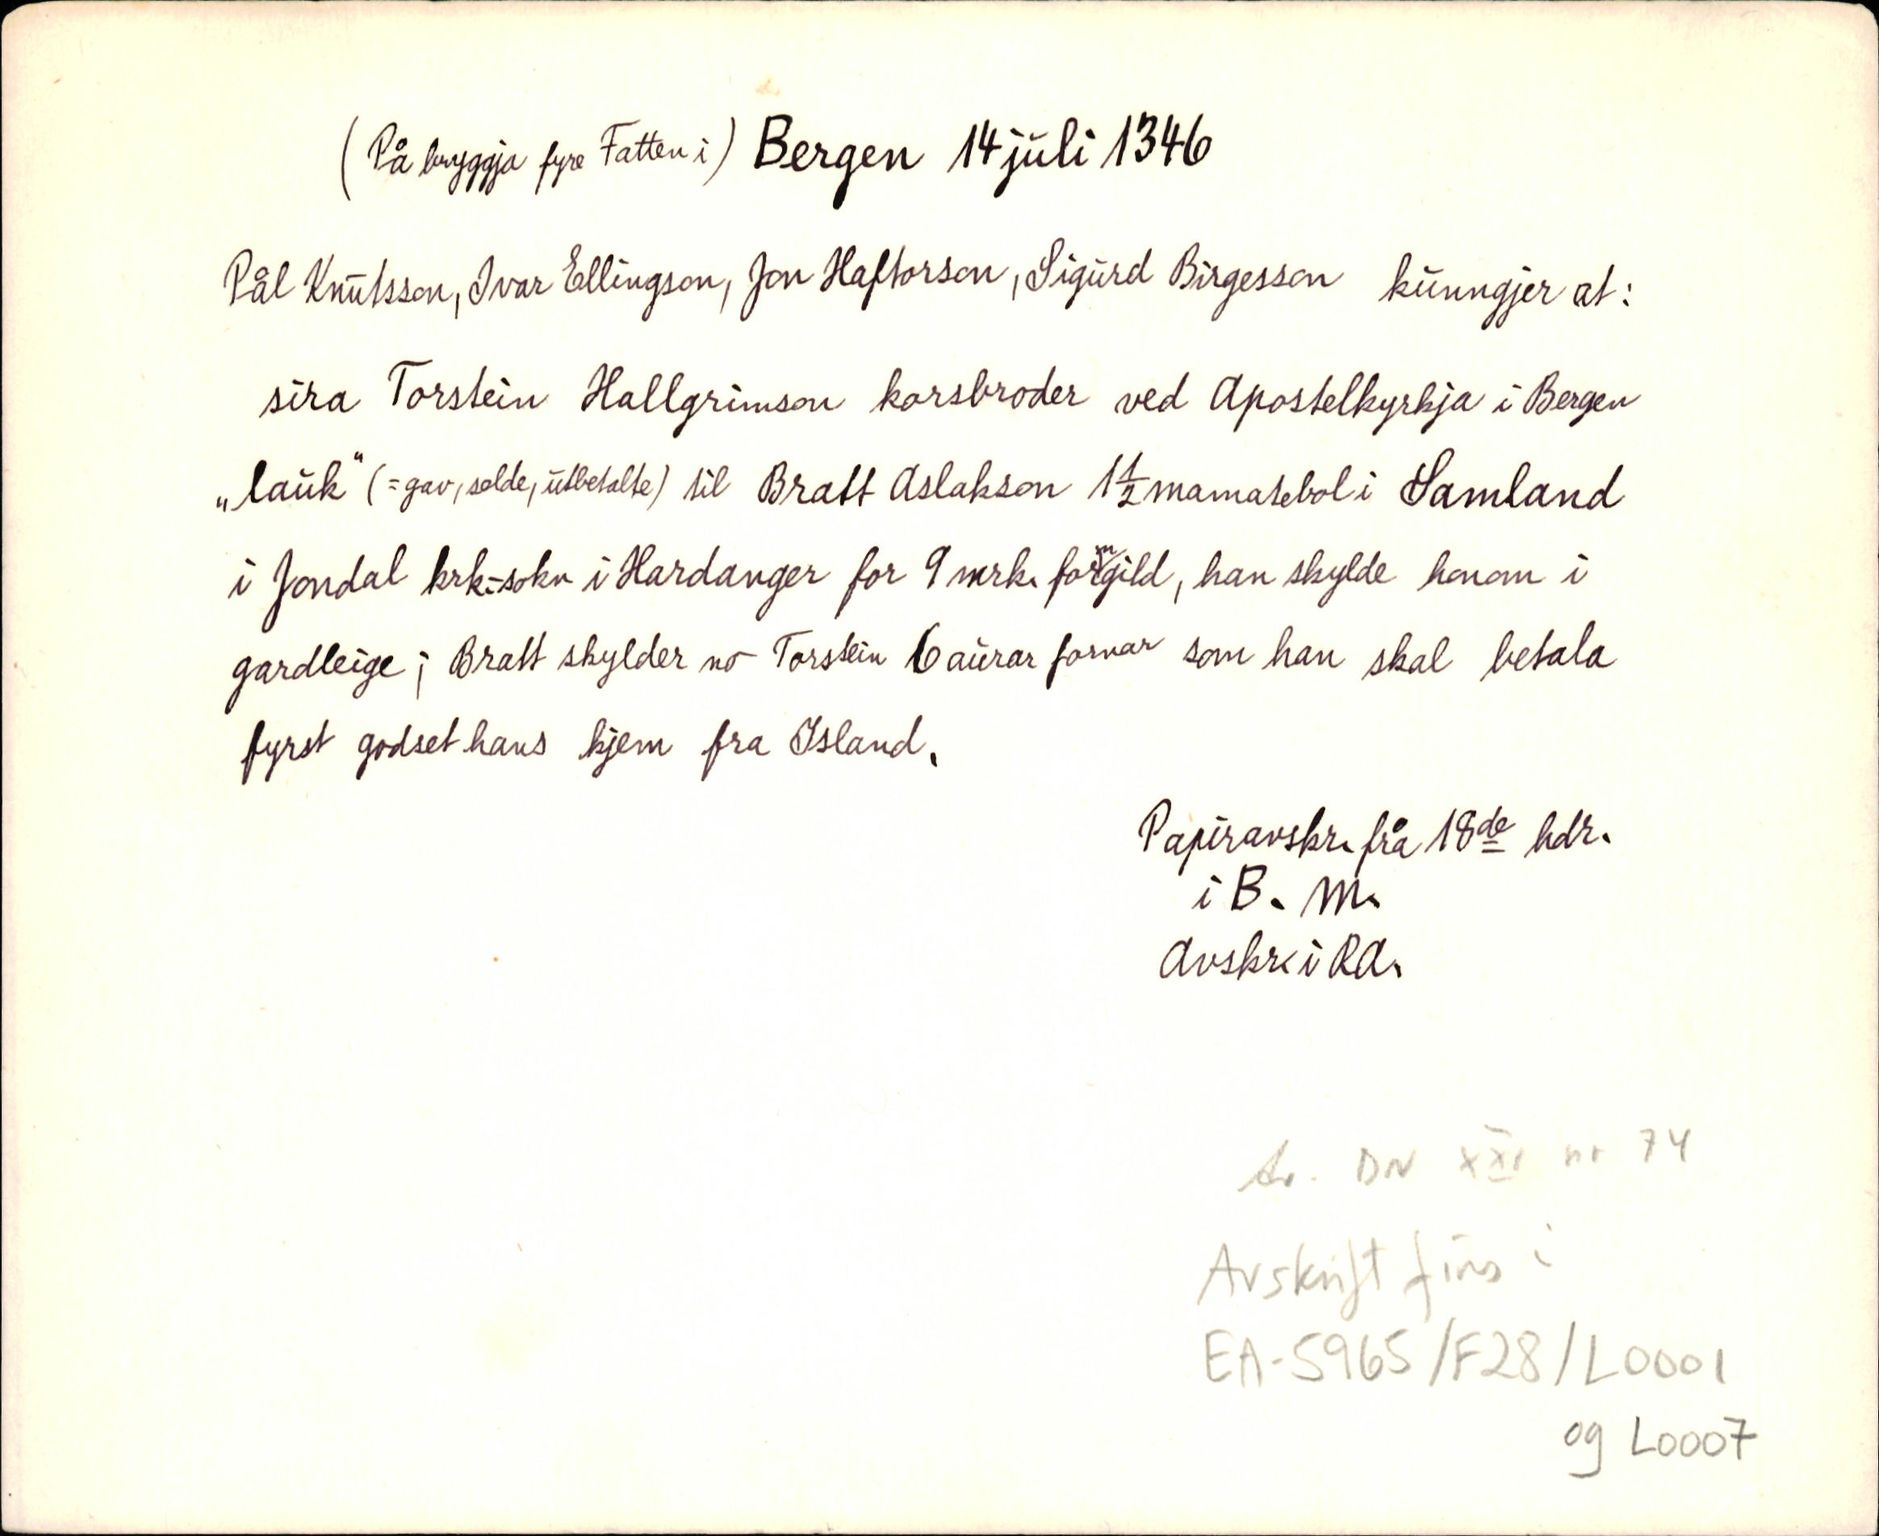 (På bryggja fyre Fatten i) Bergen 14 juli 1346
Pål Knutsson, Ivar Ellingson, Jon Haftorson, Sigurd Birgesson kunngjer at:
sira Torstein Hallgrimson korsbroder ved Apostelkyrkja i Bergen
„lauk" (= gav, selde, utbetalte) til Bratt Aslakson 1 1/2 mamatebol i Samland
i Jondal krk.-sokn i Hardanger for 9 mrk. forngild, han skylde honom i
gardleige; Bratt skylder no Torstein 6 aurar fornar som han skal betala
fyrst godset hans kjem fra Island.
Papiravskr. frå 18de hdr.
i B. M.
Avskr. i RA.
DN XXI nr 74
Avskrift fins i
EA-5965/F28/L0001
og L0007